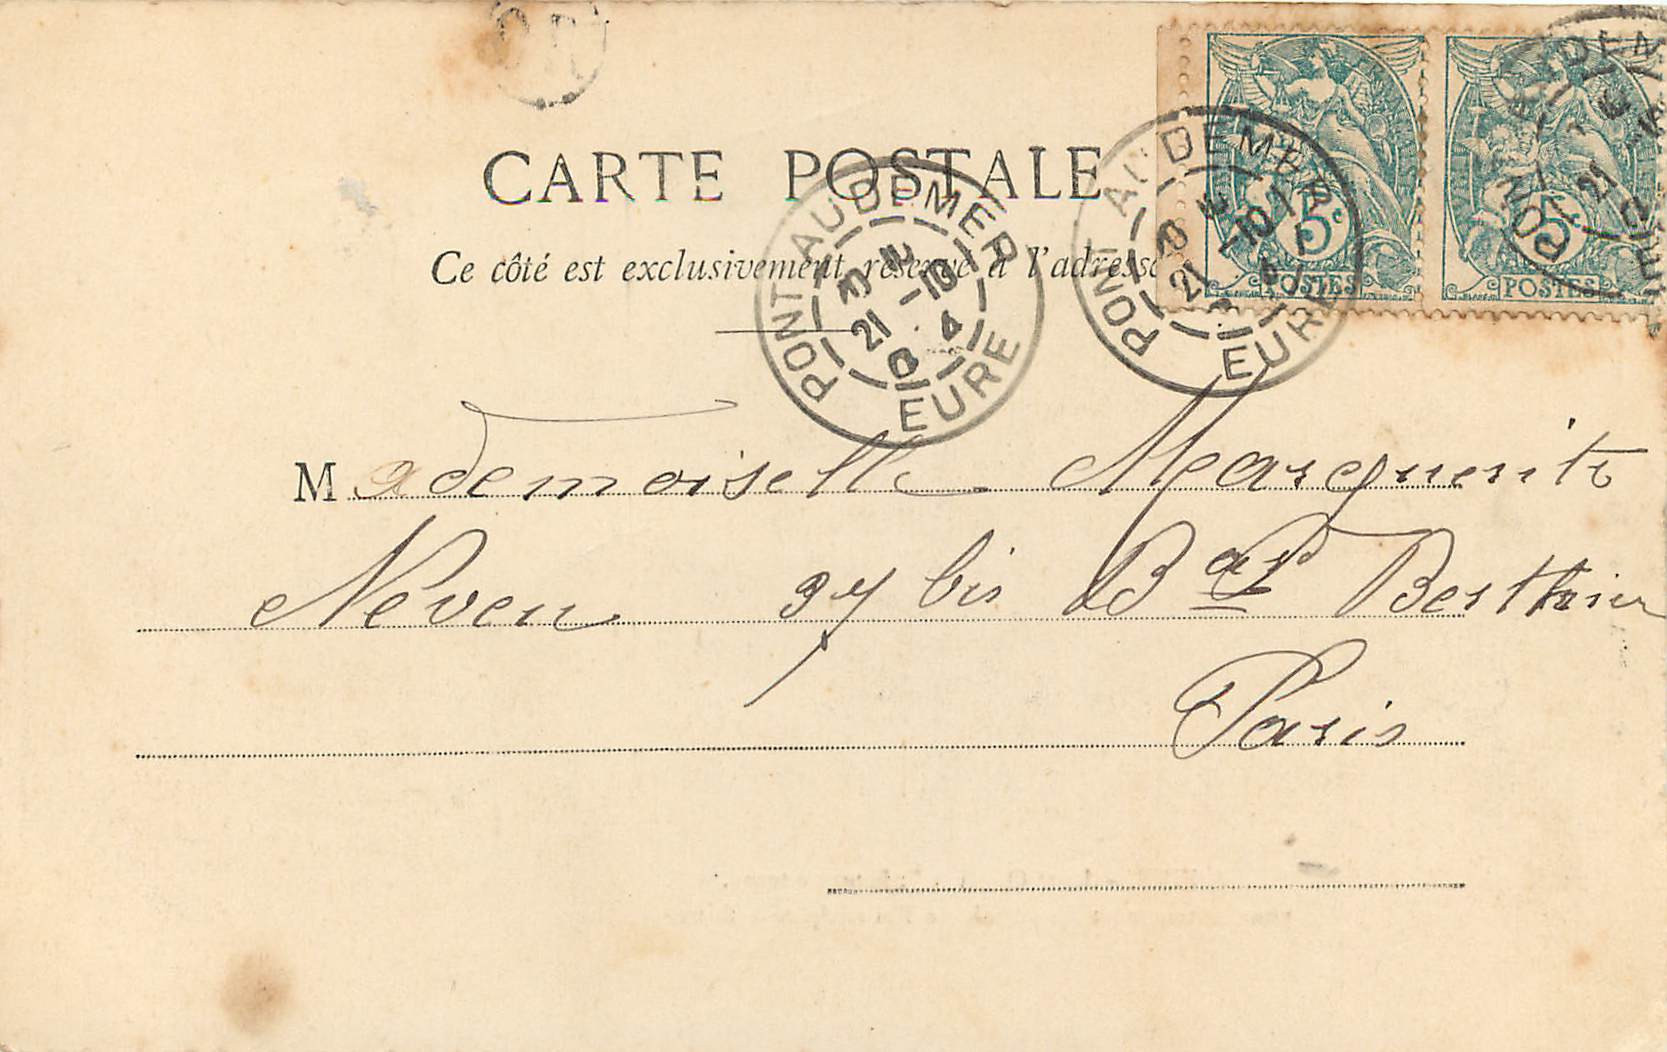 CARTE POSTALE
Ce côté est exclusivement réservé à l'adresse
PONT AUDEMER
21 -10
04
EURE
PONT AUDEMER
21 -10
EURE
5c
POSTES
5c
POSTES
PONT AUDEM
21
EURE
Mademoiselle Marguerite
Neven 37 bis Bard Berthier
Paris